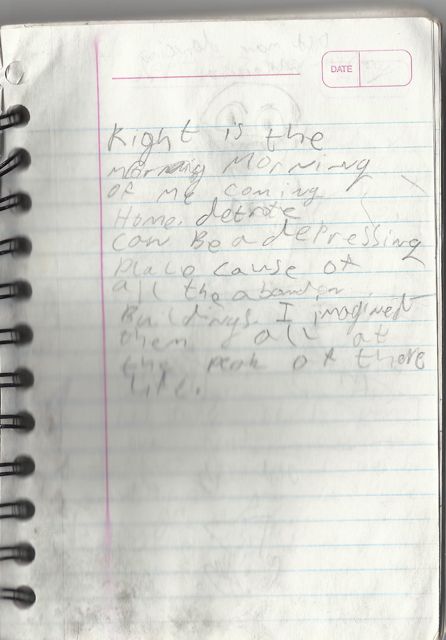 DATE
Right is the
morning Morning
of me coming
Home. detrote
can Be a depressing
place cause of
all the abandon
Buildings. I imagined
them all at
the peak of there
life.